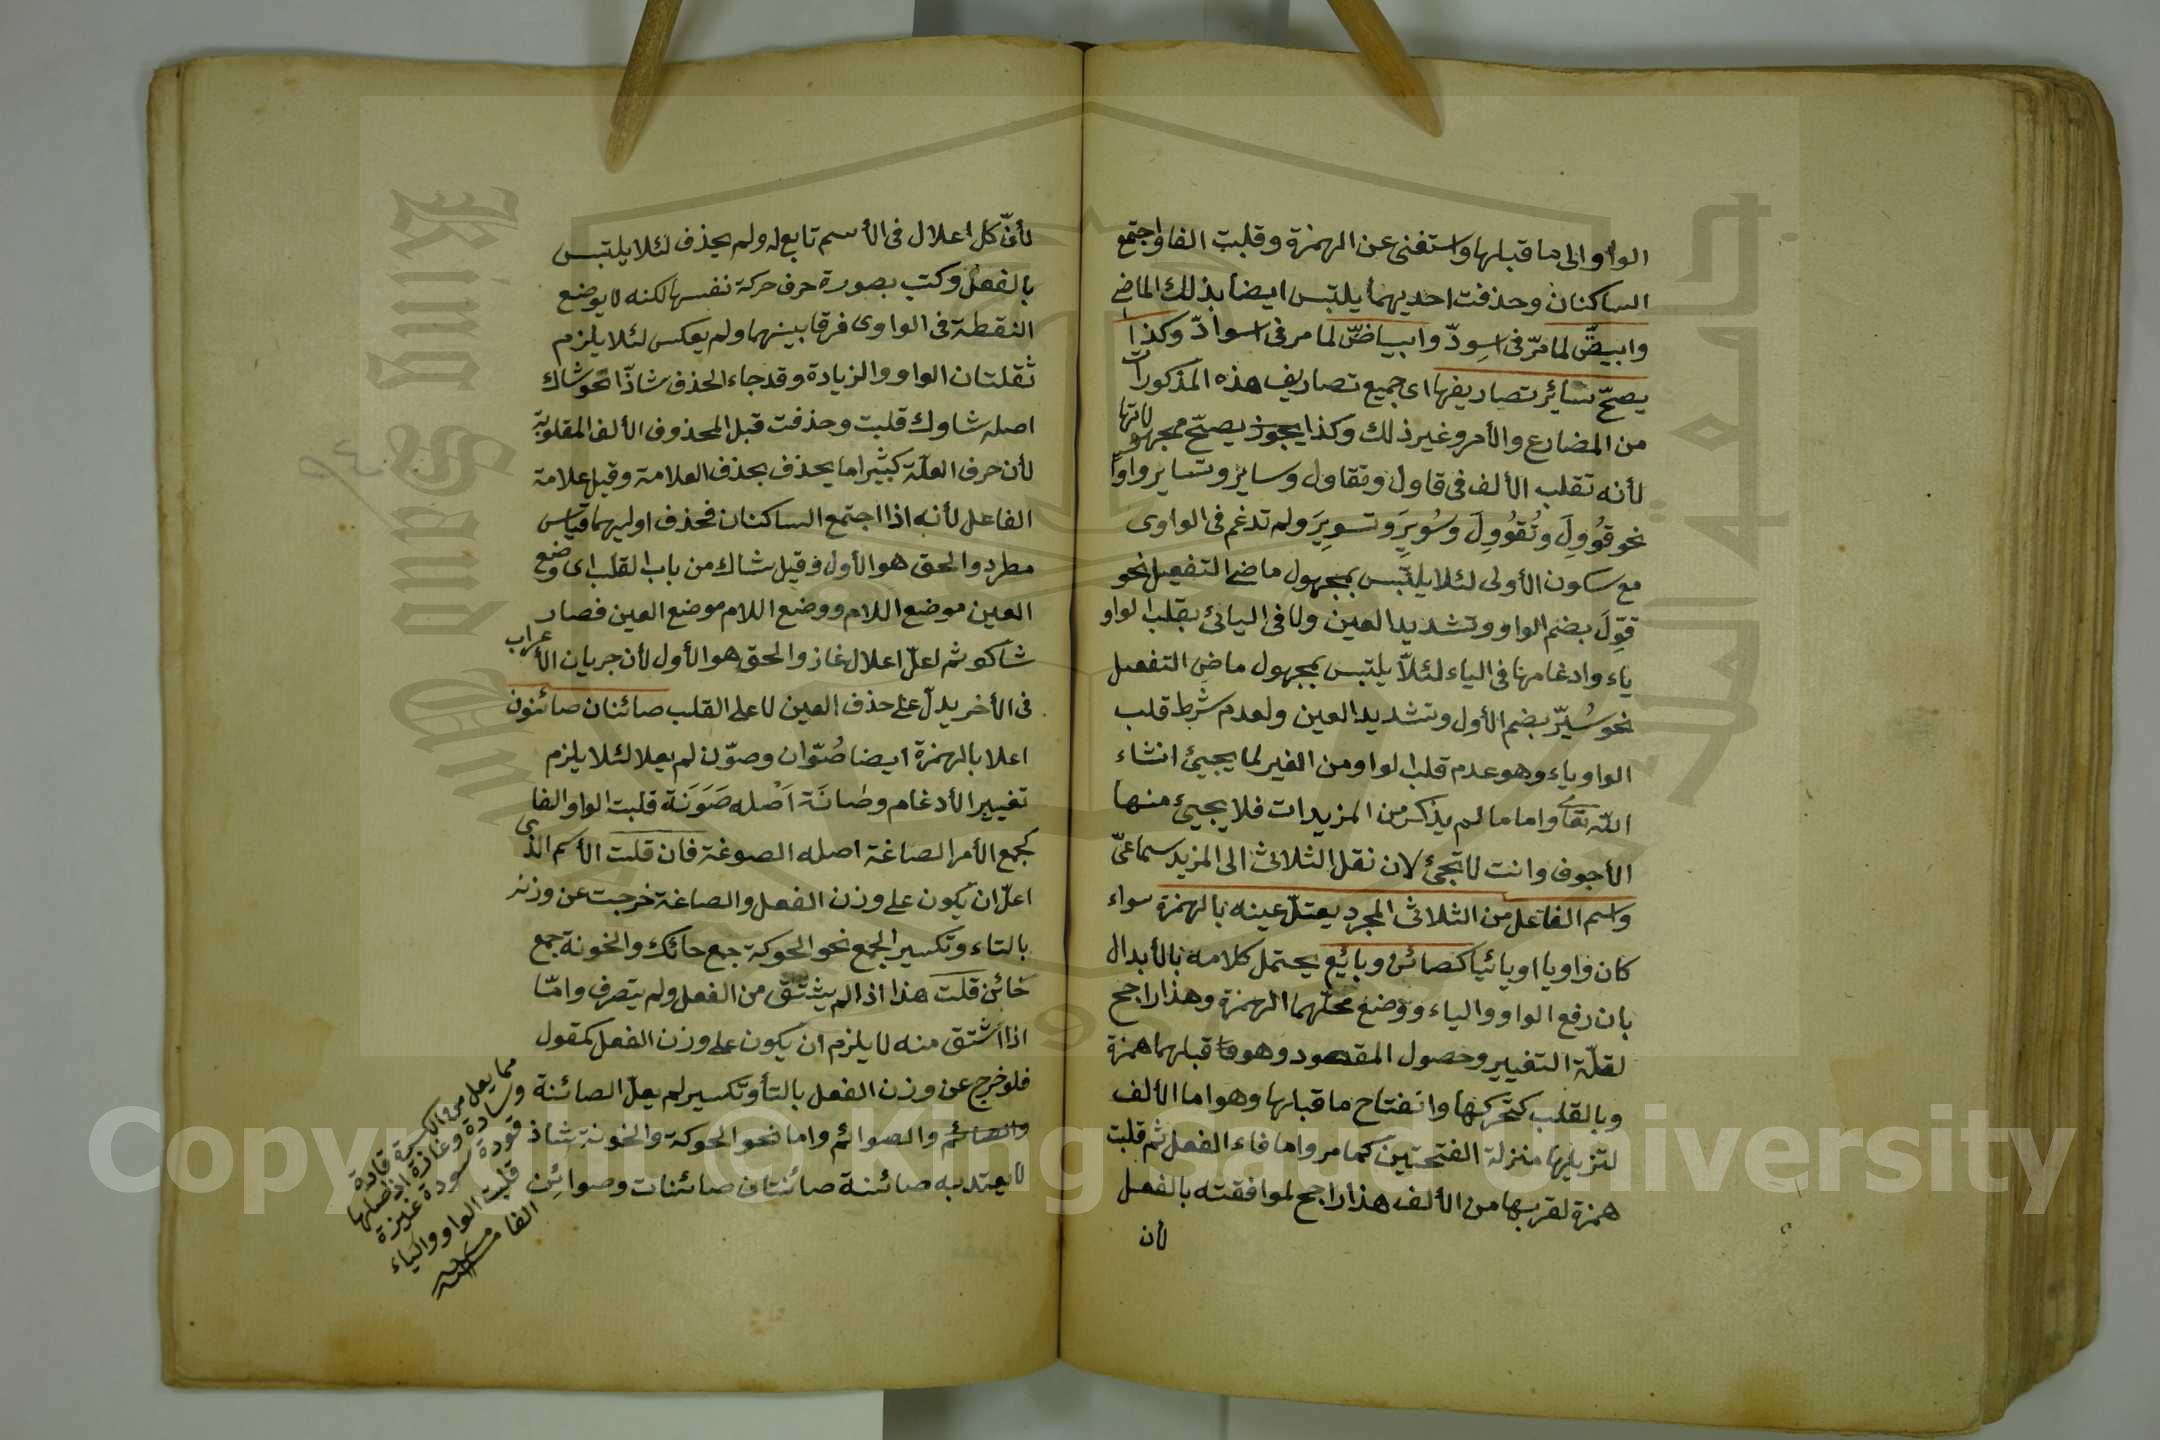 الواو الى ما قبلها واستغنى عن الهمزة وقلبت الفا واجتمع
الساكنان وحذفت احديهما يلتبس ايضا بذلك الماضى
وابيضّ لما مرّ فى اسودّ وابياضّ لما مر فى اسوادّ وكذا
يصحّ سائر تصاريفها اى جميع تصاريف هذه المذكورات
من المضارع والأمر وغير ذلك وكذا يجوز يصحّ مجهولاتها
لأنه تقلب الألف فى قاول وتقاول وساير وتساير واوا
نحو قُووِلَ وتُقُووِلَ وسُويِرَ وتسويِرَ ولم تدغم فى الواوى
مع سكون الأولى لئلا يلتبس بمجهول ماضى التفعيل نحو
قوِّلَ بضم الواو وتشديد العين ولا فى اليائى بقلب الواو
ياء وادغامها فى الياء لئلّا يلتبس بمجهول ماضى التفعيل
نحو سُيّرَ بضم الأول وتشديد العين ولعدم شرط قلب
الواو ياء وهو عدم قلب الواو من الغير لما يجيئ انشاء
اللّه تعا واما ما لم يذكر من المزيدات فلا يجيئ منها
الأجوف وانت لا تجئ لان نقل الثلاثى الى المزيد سماعىّ
واسم الفاعل من الثلاثى المجرد يعتلّ عينه بالهمزة سواء
كان واويا او يائيا كصائن وبائع يحتمل كلامه بالأبدال
بان رفع الواو والياء ووضع محلّهما الهمزة وهذا راجح
لقلّة التغيير وحصول المقصود وهو قبلهما همزة
وبالقلب كتحركها وانفتاح ما قبلها وهو اما الألف
لتزيلها منزلة الفتحتين كما مر واما فاء الفعل ثم قلبت
همزة لقربها من الألف هذا راجح لموافقته بالفعل
لأن
لأنّ كل اعلال فى الأسم تابع له ولم يحذف لئلا يلتبس
بالفعل وكتب بصورة حرف حركة نفسها لكنه لا يوضع
النقطة فى الواوى فرقا بينهما ولم يعكس لئلا يلزم
ثقلتان الواو والزيادة وقد جاء الحذف شاذّا نحو شاك
اصله شاوك قلبت وحذفت قبل المحذوف الألف المقلوبة
لأن حرف العلّة كثيرا ما يحذف بحذف العلامة وقيل علامة
الفاعل لأنه اذا اجتمع الساكنان فحذف اوليهما قياس
مطرد والحق هو الأول وقيل شاك من باب القلب اى وضع
العين موضع اللام ووضع اللام موضع العين فصار
شاكو ثم اعلّ اعلال غاز والحق هو الأول لأن جريان الأعراب
فى الأخر يدلّ على حذف العين لا على القلب صائنان صائنون
اعلا بالهمزة ايضا صُوّان وصوّن لم يعلا لئلا يلزم
تغيير الأدغام وصانَة اَصْله صَوَنَة قلبت الواو الفا
كجمع الأمر الصاغة اصله الصوغة فان قلت الأسم الذى
اعلّ ان يكون على وزن الفعل والصاغة خرجت عن وزنه
بالتاء وتكسير الجمع نحو الحوكة جمع حائك والخونة جمع
خائن قلت هذا اذا لم يشتق من الفعل ولم يتصرف وامّا
اذا اشتق منه لا يلزم ان يكون على وزن الفعل كمقول
فلو خرج عن وزن الفعل بالتأ وتكسير لم يعلّ الصائنة
والصائم والصوائم واما نحو الحوكة والخونة شاذ
لا يعتد به صائنة صائنتان صائنات وصوائن
مما يعل من قادة
وسادة وعازة اذ اصلها
قودة سودة عيزة
قلبت الواو والياء
الفا